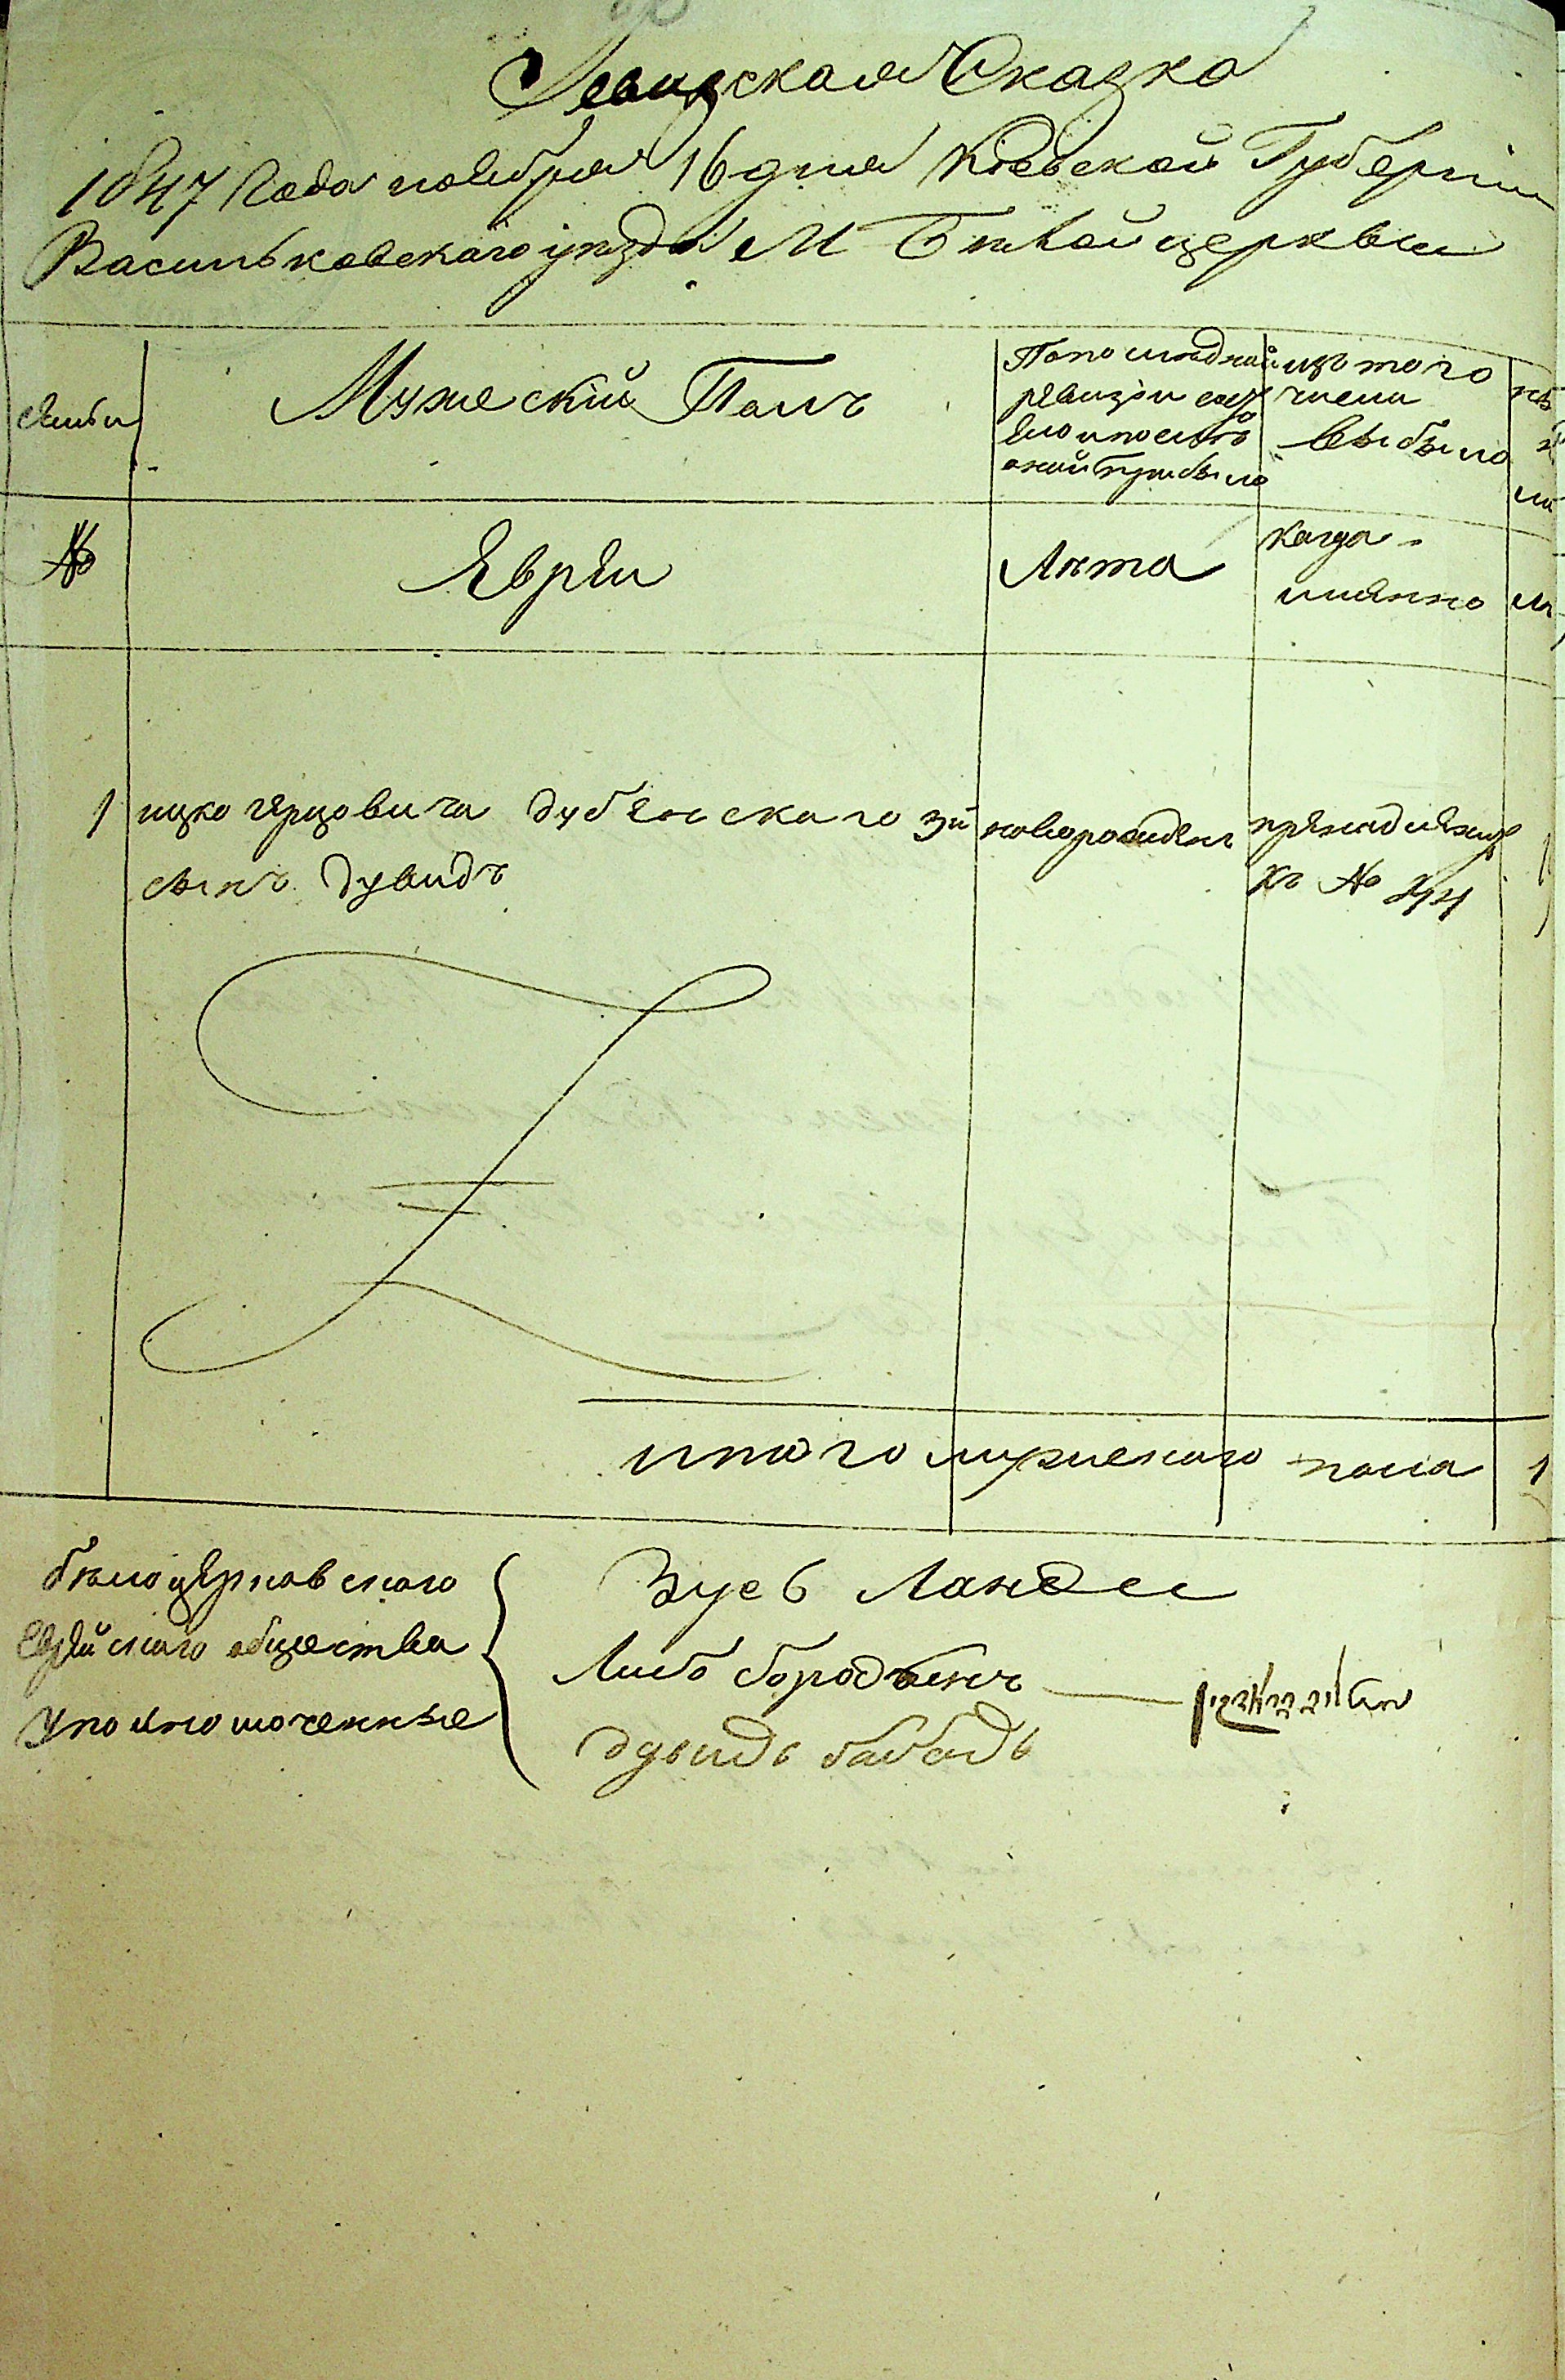 Ревизская Сказка
1847 Года ноября 16 дня Киевской Губернии
Васильковского уезда М Белой церквы
семьи
Мужеский Полъ
По последней
ревизіи состо
яло и после
оной прибыло
изъ того
числа
выбыло
№
Явреи
Лета
когда
имянно
1 ицко герцовича дубенскаго 3й
сынъ дувидъ
новорожденъ
пренадлежищ
къ № 244
итого мужескаго пола 1
белоцерковского
еврейскаго общества
уполномоченные
Зусь Ландес
Лейб бородянъ
дувидъ бабадъ